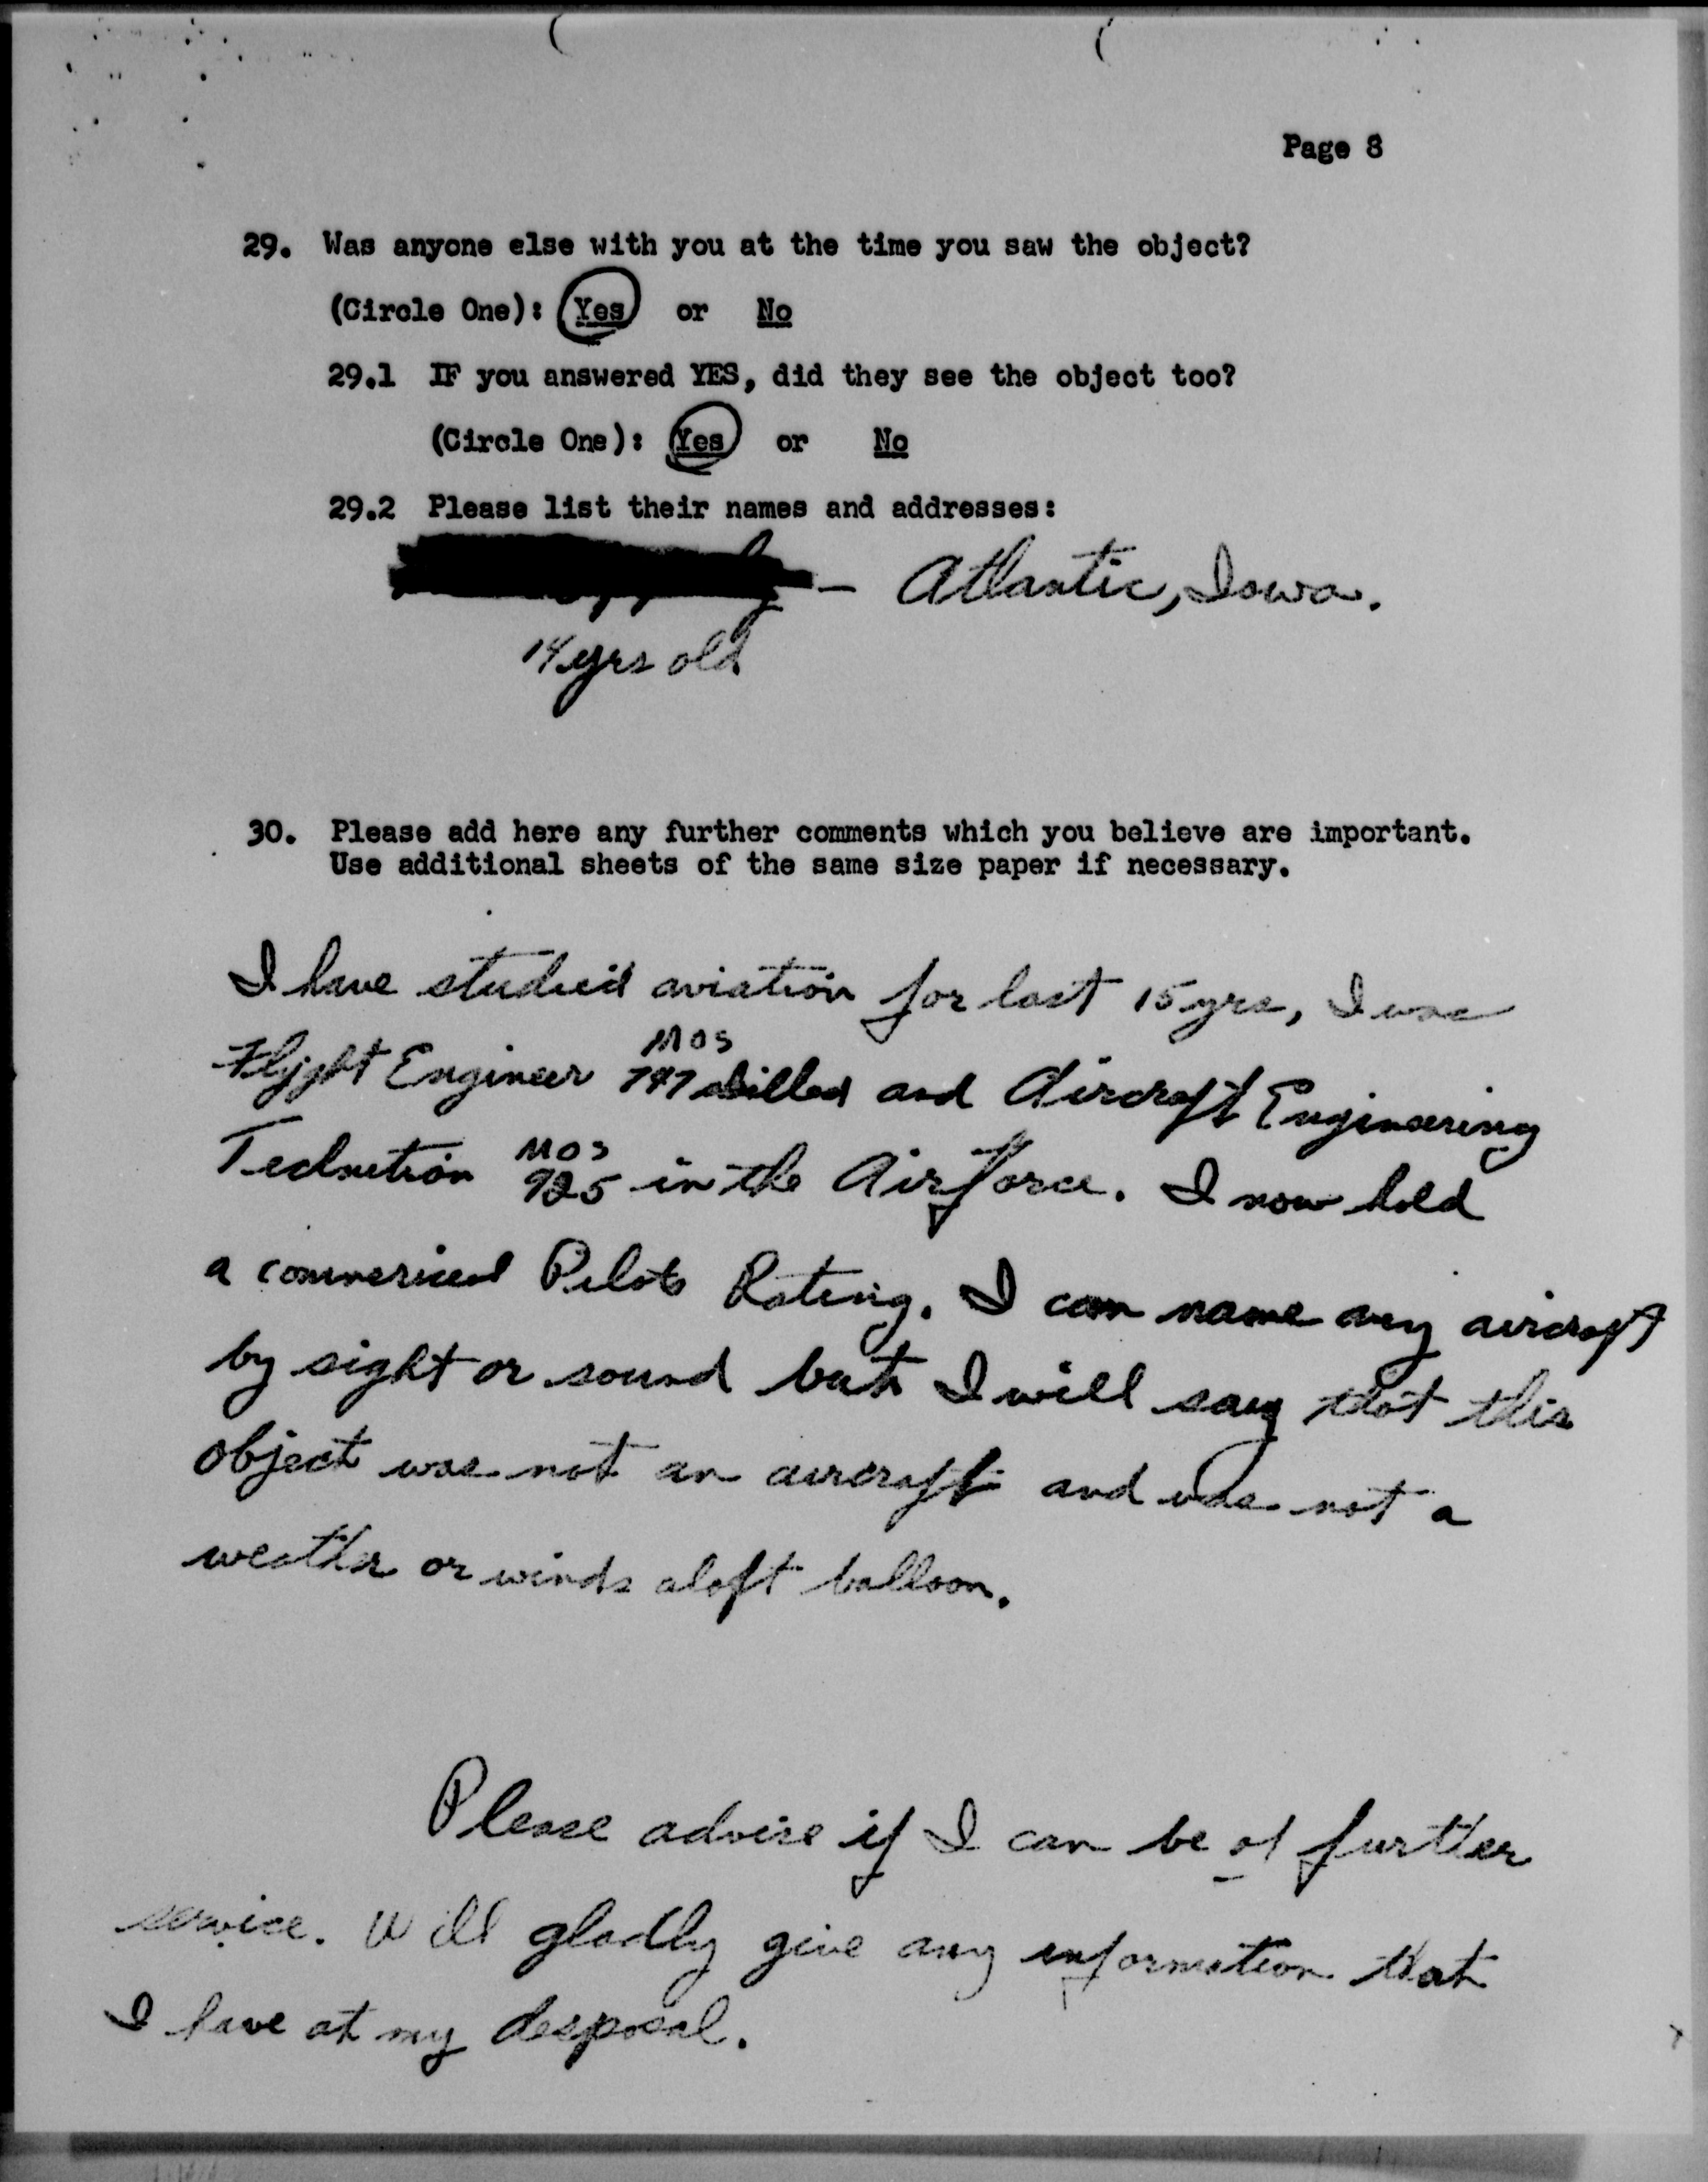 Page 8
29. Was anyone else with you at the time you saw the object?
(Circle One): Yes or No
29.1 IF you answered YES, did they see the object too?
(Circle One): Yes or No
29.2 Please list their names and addresses:
— Atlantic, Iowa.
14 yrs old
30. Please add here any further comments which you believe are important.
Use additional sheets of the same size paper if necessary.
I have studied aviation for last 15 yrs, I was
MOS
Flight Engineer 747 skilled and Aircraft Engineering
MOS
Technetion 925 in the Airforce. I now hold
a commerical Pilots Rating. I can name any aircraft
by sight or sound but I will say that this
object was not an aircraft and was not a
weather or winds aloft balloon.
Please advise if I can be of further
service. Will gladly give any information that
I have at my desposal.